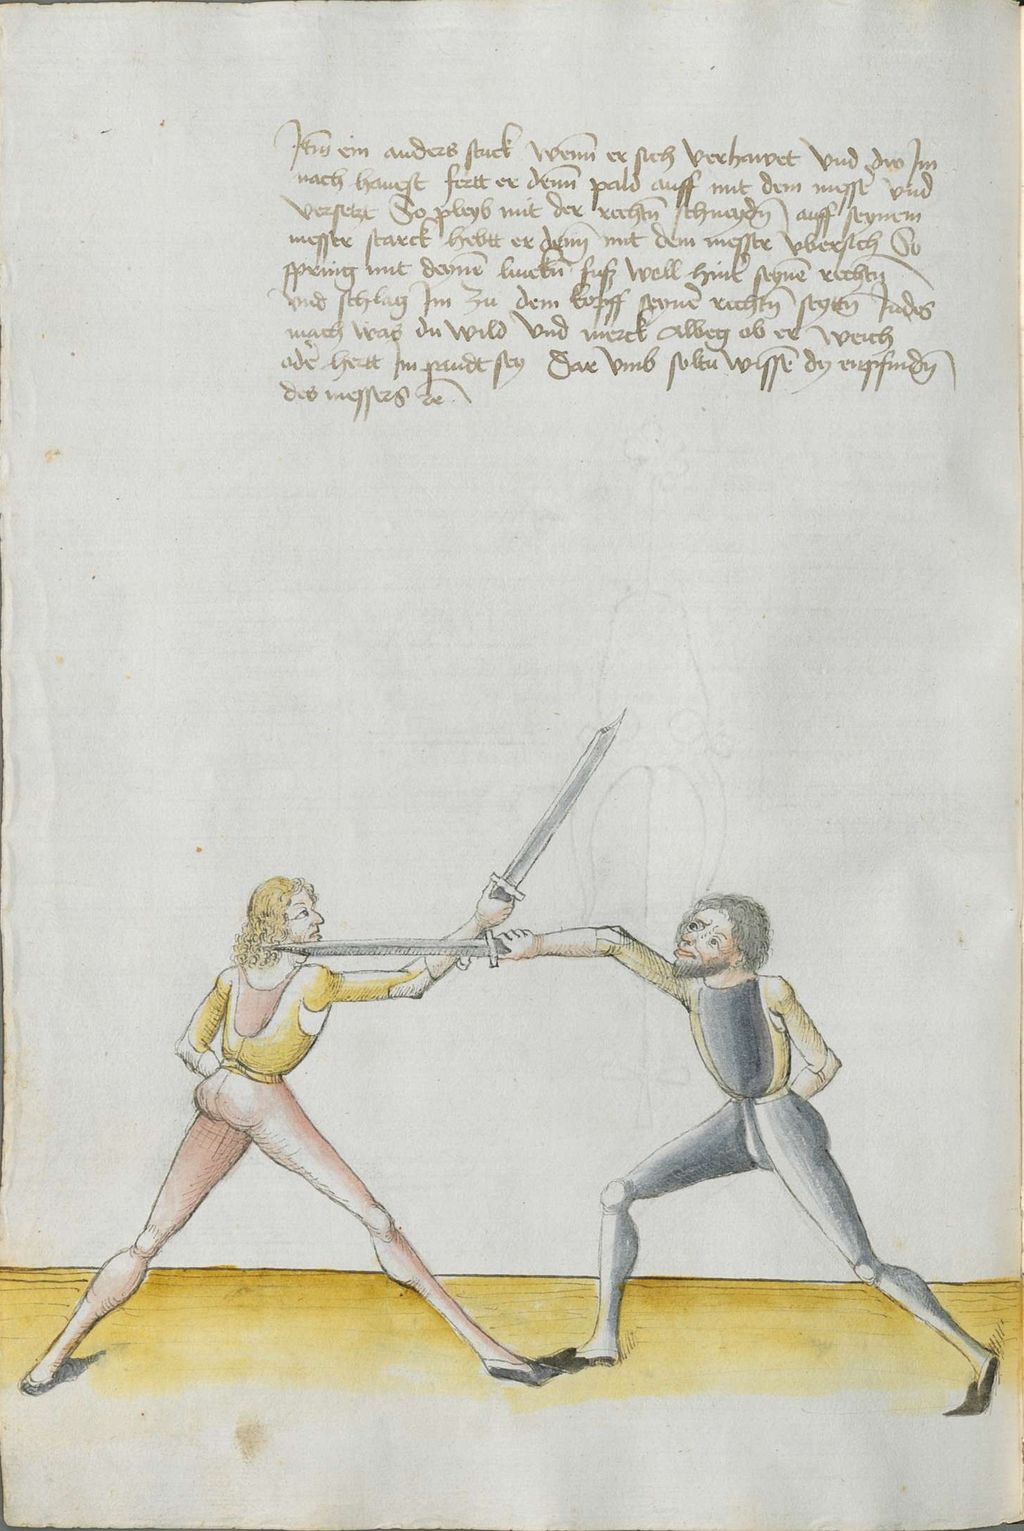 Itm̄ ein anders stuck Wenn̄ er sich verhawet Vnd dw Im
nach hawest fertt er denn̄ pald auff mit dem messer vnd
versetzt So pleyb mit der rechtn̄ schneydn̄ auff seynem
messer starck hebtt er denn̄ mit dem messer vbersich So
spring mit deynē linckn̄ fuß woll hintr̄ seynē rechtn̄
vnd schlag Im zu dem kopff seynr̄ rechtn̄ seytn̄ Indes
mach was du wild Vnd merck Albeg ob er weich
odr̄ hertt Im pandt sey Dar vmb soltu wissē dy enpfindn̄
des messers